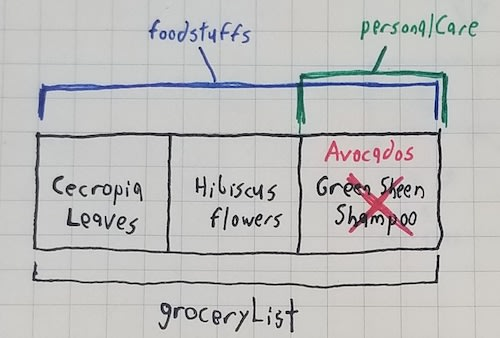 foodstuffs
personalCare
Avocados
Cecropia
Leaves
Hibiscus
flowers
Green Sheen
Shampoo
groceryList